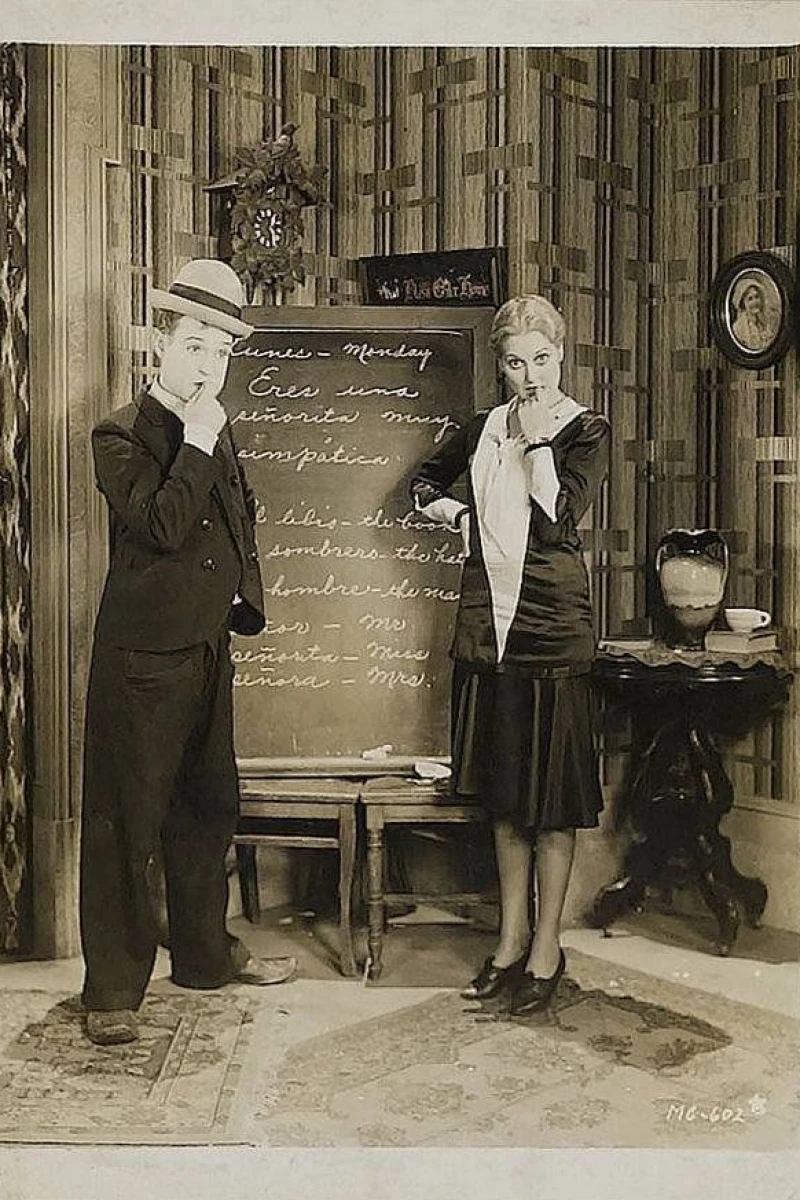 God Bless Our Home
Lunes - Monday
Eres una
señorita muy
simpática.
l libio - the book
sombrero - the hat
hombre - the ma
ñor - Mr
señorita - Miss
señora - Mrs.
MG-602